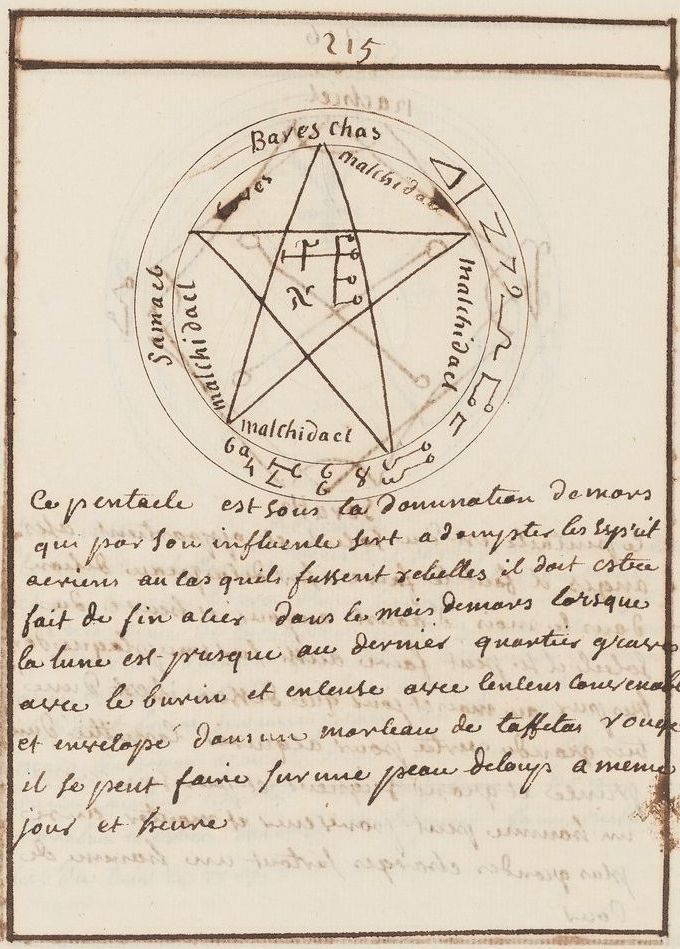 215
Bareschas
malchidael
malchidael
Samael
malchidael
malchidael
Ce pentacle est sous la domination de mars
qui par son influence sert a dompter les Esp'rit
aeriens au cas quils fussent rebelles il doit estre
fait de fin acier dans le mois de mars lorsque
la lune est presque au dernier quartier graver
avec le burin et encensé avec lencens Convenab
et envelopé dans un morceau de taffetas rouge
il se peut faire sur une peau de loup a meme
jour et heure